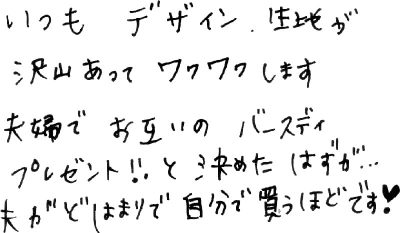 いつも デザイン、生地が
沢山あって ワクワクします
夫婦で お互いの バースディ
プレゼント!! と 決めた はずが…
夫がどはまりで 自分で買うほどです♥